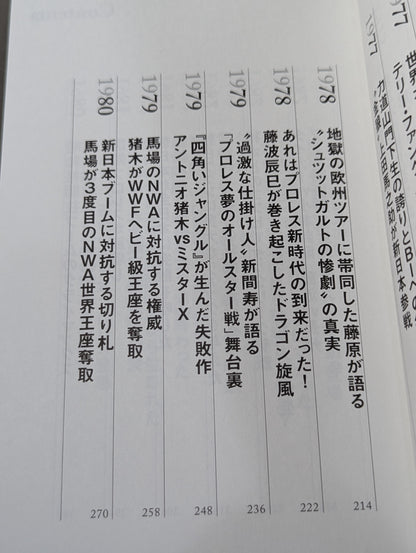 1977
世界
テリー・ファンク
1977
力道山門下生の誇りとBIへの
上田馬之助が新日本参戦
1978
地獄の欧州ツアーに帯同した藤原が語る
〝シュツットガルトの惨劇〟の真実
214
1978
あれはプロレス新時代の到来だった！
藤波辰巳が巻き起こしたドラゴン旋風
222
1979
〝過激な仕掛け人〟新間寿が語る
「プロレス夢のオールスター戦」舞台裏
236
1979
『四角いジャングル』が生んだ失敗作
アントニオ猪木vsミスターX
248
1979
馬場のNWAに対抗する権威
猪木がWWFヘビー級王座を奪取
258
1980
新日本ブームに対抗する切り札
馬場が3度目のNWA世界王座奪取
270